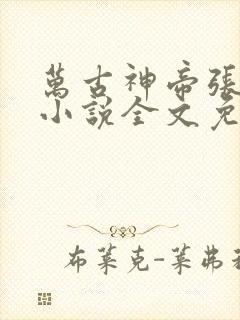 萬古神帝張
小說全文免
布萊克-萊弗利